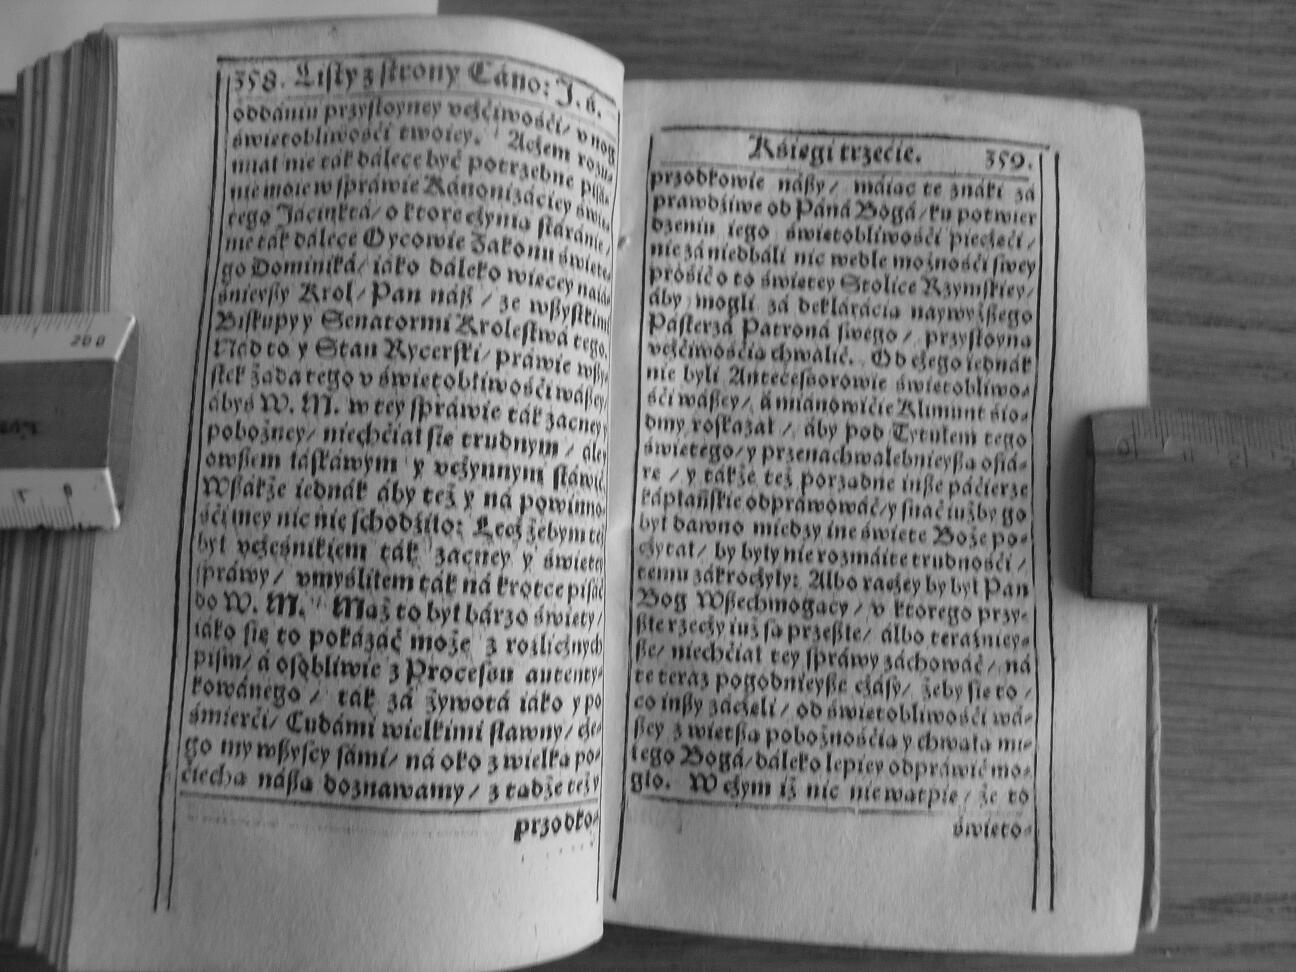 358. Listy z strony Cáno: J. á.
oddániu przystoyney vcżćiwośći/ v nog
świetobliwośći twoiey. Acżem rozu-
miał nie ták dálece być potrzebne písá-
nie moie w spráwie Kánonizáciey świe-
tego Jácinktá/ o ktore cżynia stáránie/
nie ták dálece Oycowie Zakonu świete-
go Dominiká/ iáko dáleko wiecey naia-
śnieyßy Krol/ Pan náß/ ze wßystkimi
Biskupy y Senatormi Krolestwá tego.
Nád to y Stan Rycerski/ práwie wßy-
stek żada tego v świetobliwośći wáßey/
ábyś W. M. w tey spráwie ták zacney y
pobożney/ niechćiał sie trudnym/ ále
owßem łáskáwym y vcżynnym stáwić
Wßákże iednák áby też y ná powinno-
śći mey nic nie schodźiło: Lecż żebym też
był vcżesnikiem ták zacney y świetey
spráwy/ vmyśliłem ták ná krotce pisáć
do W. M. Maż to był bárzo świety/
iáko się to pokázáć może z rozlicżnych
pism/ á osobliwie z Procesou autenty-
kowánego/ ták zá żywotá iáko y po
śmierći/ Cudámi wielkimi sławny/ cże-
go my wßyscy sámi/ ná oko z wielka po-
ćiecha náßa doznawamy/ z tadże też y
przodko-
Kśiegi trzećie. 359.
przodkowie náßy/ máiac te znáki zá
prawdźiwe od Páná Bogá/ ku potwier
dzeniu iego świetobliwośći piecżeći/
nic zániedbáli nic wedle możnośći swey
prośić o to świetey Stolice Rzymskiey/
áby mogli zá deklárácia naywyżßego
Pásterzá Patroná swego/ przystoyna
vcżćiwośćia chwalić. Od cżego iednák
nie byli Antecessorowie świetobliwo-
śći wáßey/ á mianowićie Klimunt śio-
dmy roskazał/ áby pod Tytułem tego
świetego/ y przenachwalebnieyßa ofiá-
re/ y tákże też porzadne inße páćierze
kápłáńskie odpráwowáć/ y snać iużby go
był dawno miedzy ine świete Boże po-
cżytał/ by były nie rozmáite trudnośći/
temu zákrocżyły: Albo racżey by był Pan
Bog Wßechmogacy/ v ktorego przy-
ßłe rzecży iuż są przeßłe/ álbo teráźniey-
ße/ niechćiał tey spráwy záchowáć/ ná
te teraz pogodnieyße cżásy/ żeby sie to/
co inßy zácżeli/ od świetobliwośći wá-
ßey z wietßa pobożnośćia y chwała mi-
łego Bogá/ dáleko lepiey odpráwić mo-
gło. W cżym iż nic nie watpie/ że to
świeto-
200